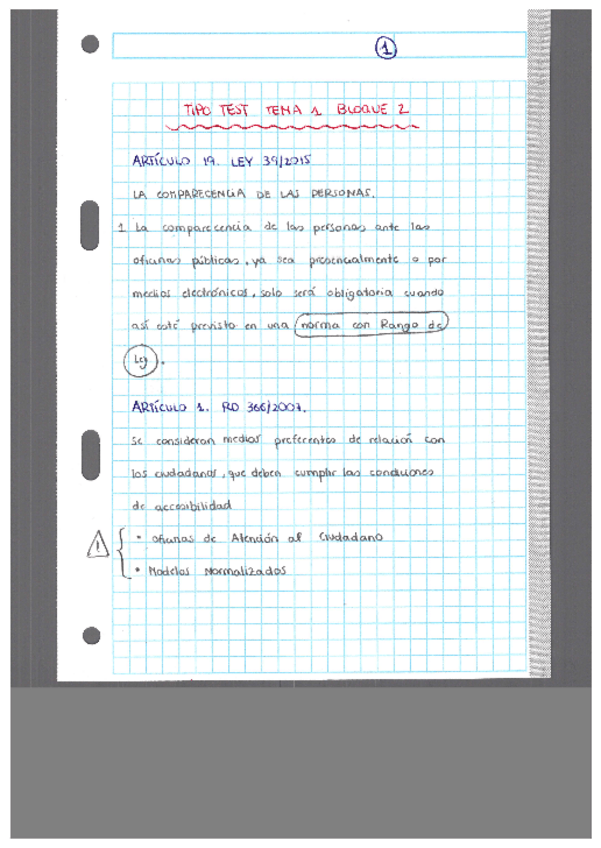 1
TIPO TEST TEMA 1 BLOQUE 2
ARTÍCULO 19. LEY 39/2015
LA COMPARECENCIA DE LAS PERSONAS.
1 La comparecencia de las personas ante las
oficinas públicas, ya sea presencialmente o por
medios electrónicos, solo será obligatoria cuando
así esté previsto en una norma con Rango de
Ley.
ARTÍCULO 1. RD 366/2007.
Se consideran medios preferentes de relación con
los ciudadanos, que deben cumplir las condiciones
de accesibilidad
! • Oficinas de Atención al Ciudadano
• Modelos Normalizados